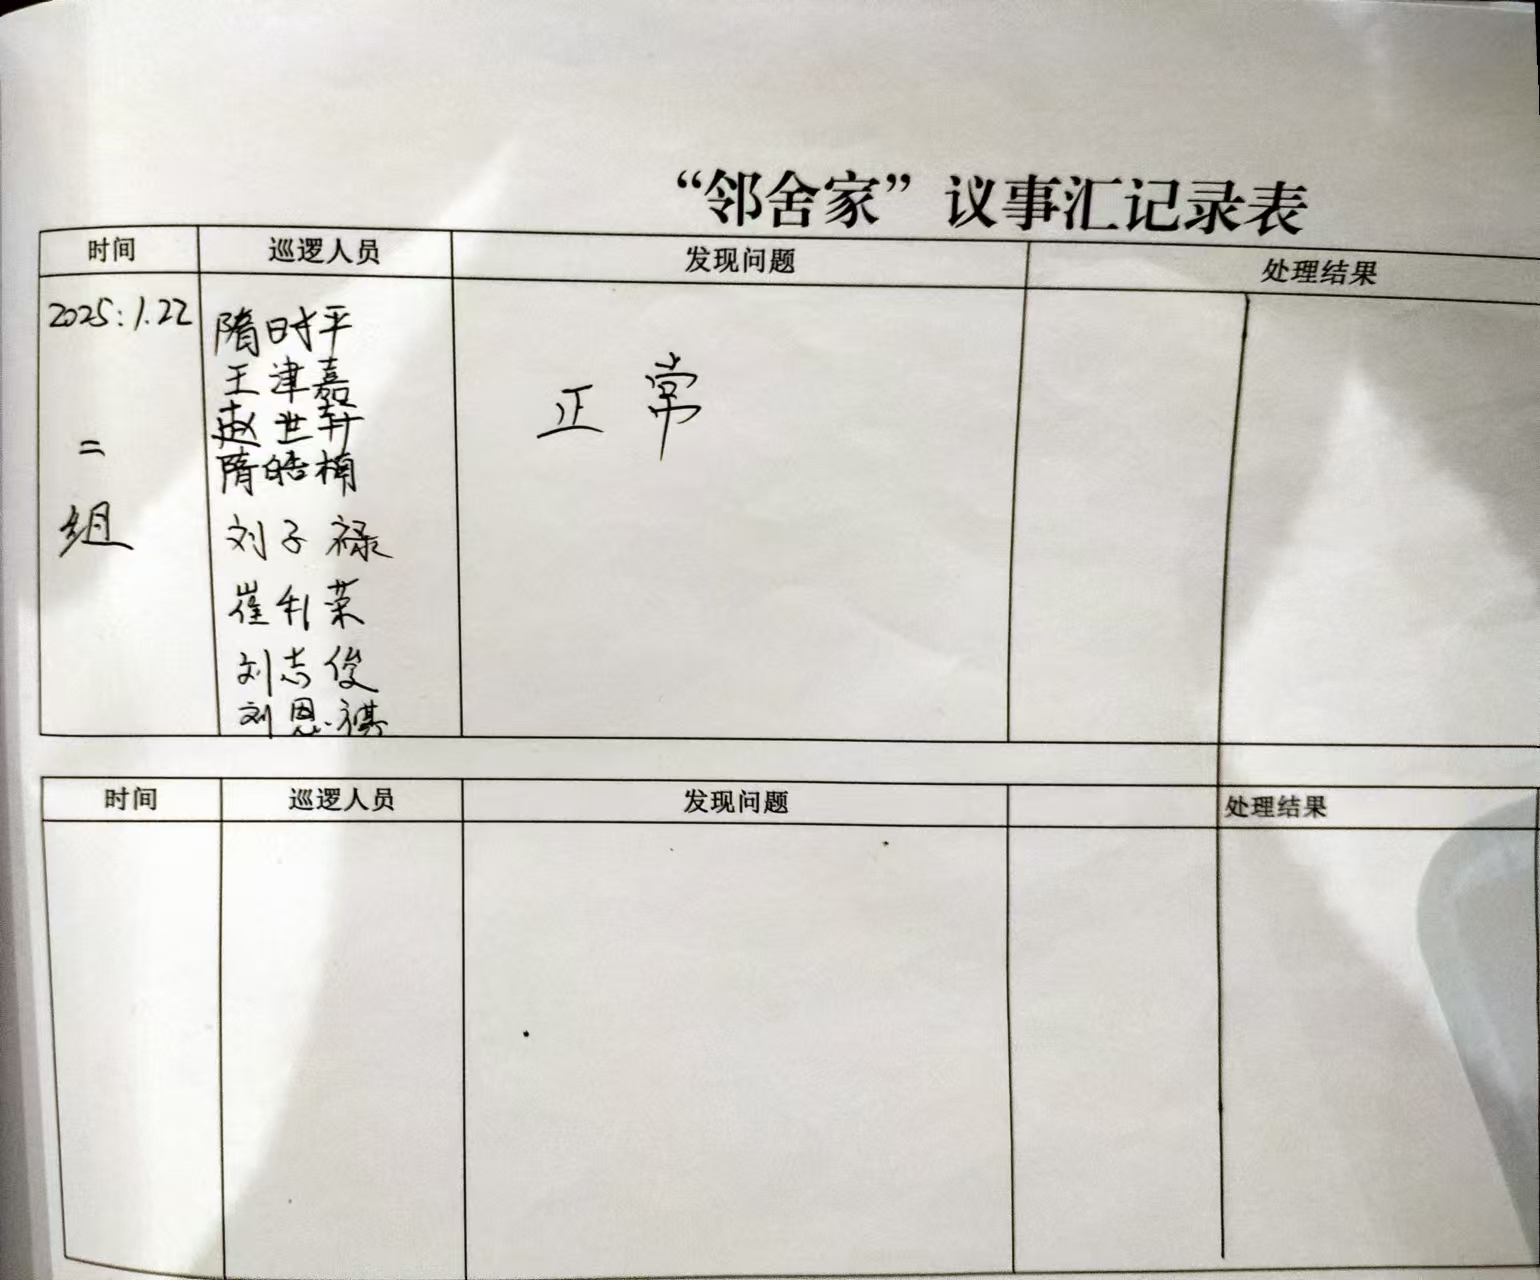 “邻舍家”议事汇记录表
时间 巡逻人员 发现问题 处理结果
2025:1.22
二
组
隋时平
王津嘉
赵世轩
隋皓楠
刘子禄
崔利荣
刘志俊
刘恩祺
正常
时间 巡逻人员 发现问题 处理结果